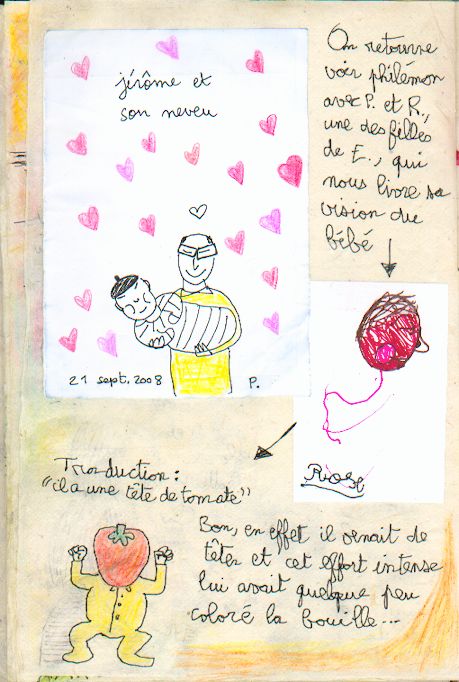 jérôme et
son neveu
21 sept. 2008
P.
On retourne
voir philémon
avec P. et R.,
une des filles
de E., qui
nous livre sa
vision du
bébé
Rose
Traduction :
"il a une tête de tomate"
Bon, en effet il venait de
têter et cet effort intense
lui avait quelque peu
coloré la bouille...